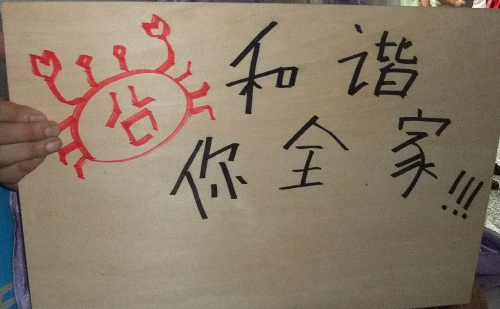 和谐
你全家!!!